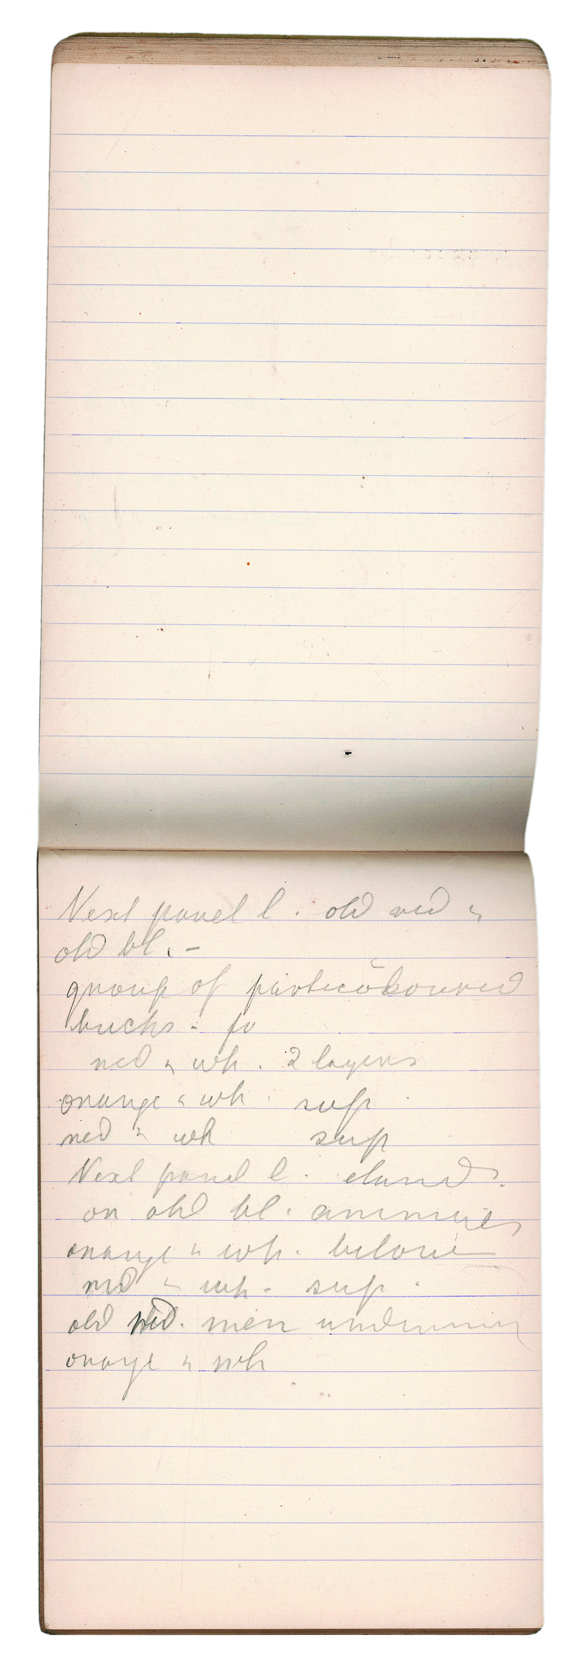 Next panel l. old red &
old bl. –
group of particoloured
bucks – fo
red & wh. 2 layers
orange & wh. sup.
red & wh sup
Next panel l. elands.
on old bl. animals
orange & wh. below
red & wh. sup.
old red. men underneath
orange & wh